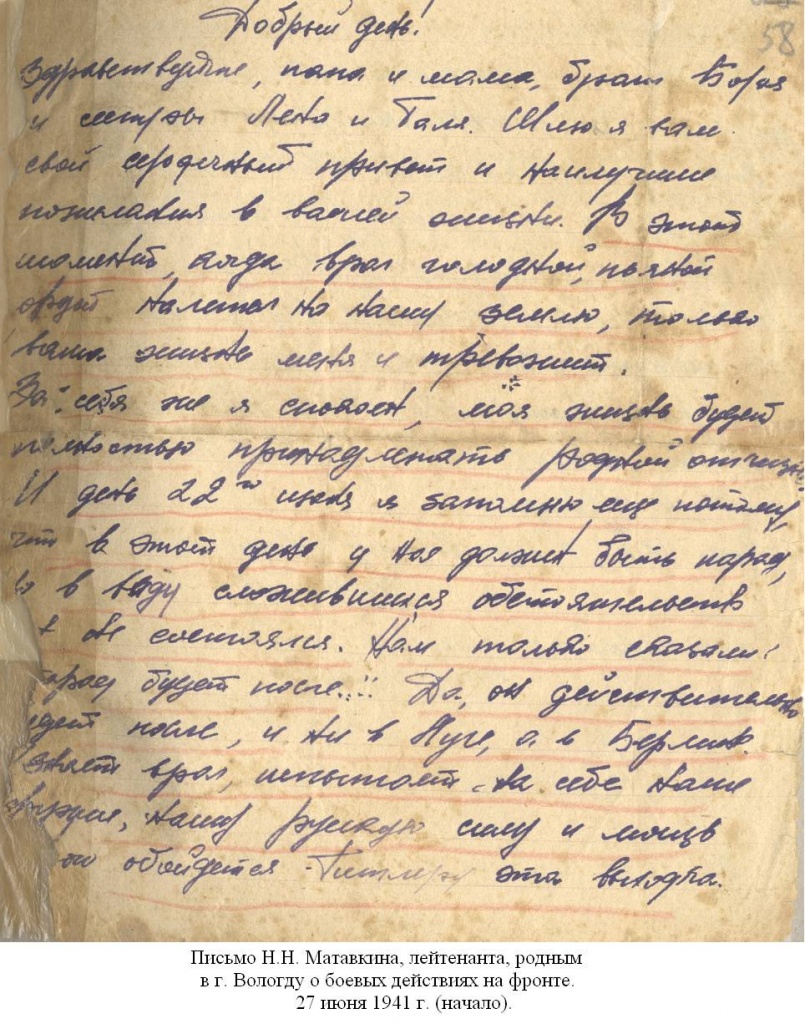 Добрый день!
58
Здравствуйте, папа и мама, брат Боря
и сестры Лена и Галя. Шлю я вам
свой сердечный привет и наилучшие
пожелания в вашей жизни. В этот
момент, когда враг голодной, пьяной
ордой налетел на нашу землю, только
ваша жизнь меня и тревожит.
За себя же я спокоен, моя жизнь будет
полностью принадлежать родной отчизне.
И день 22го июня я запомню еще потому,
что в этот день у нас должен быть парад,
но в виду сложившихся обстоятельств
не состоялся. Нам только сказали:
парад будет после...!! Да, он действительно
будет после, и ни в Луге, а в Берлине.
Узнает враг, испытает на себе наше
оружие, нашу рускую силу и мощь
обойдется Гитлеру эта выходка.
Письмо Н.Н. Матавкина, лейтенанта, родным
в г. Вологду о боевых действиях на фронте.
27 июня 1941 г. (начало).